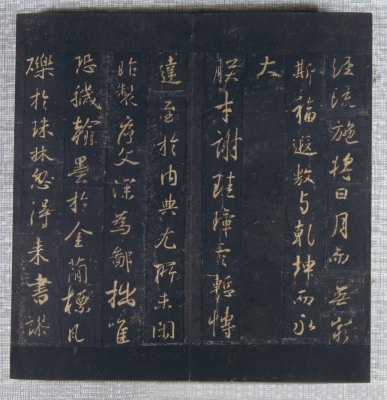 經流施將日月而無窮
斯福遐敷与乾坤而永
大
朕才謝珪璋言慙博
達至於內典尤所未閑
昨製序文深為鄙拙唯
恐穢翰墨於金簡標瓦
礫於珠林忽得来書謬